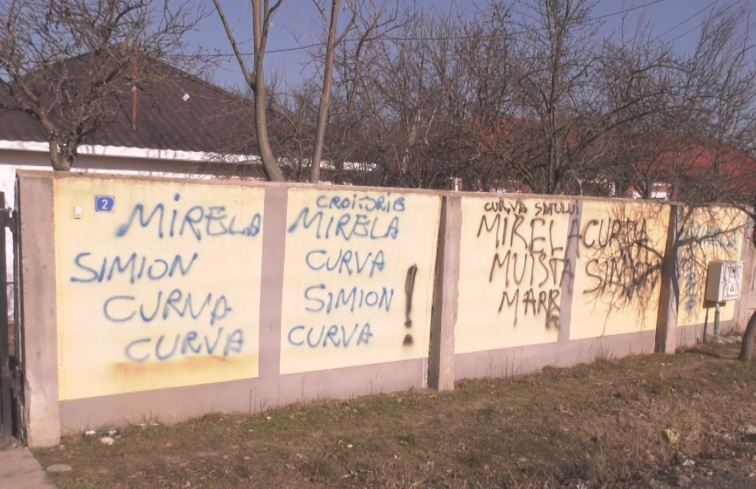 2
MIRELA
SIMION
CURVA
CURVA
CROITORIE
MIRELA
CURVA
SIMION
CURVA !
CURVA SATULUI
MIRELA
MUISTA
MARE
CURVA